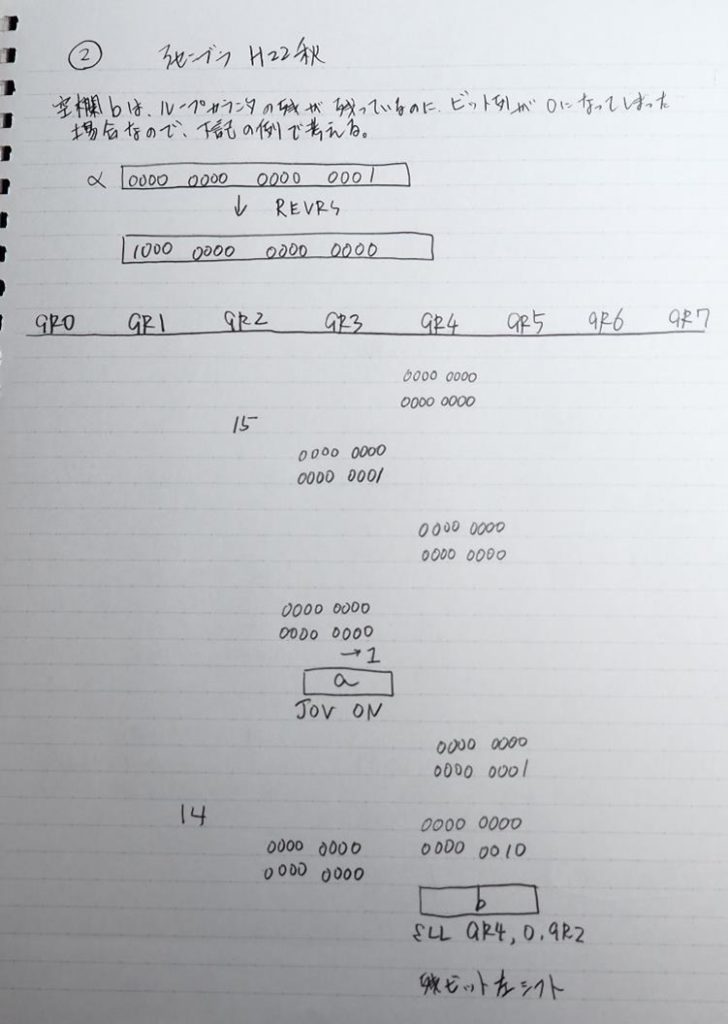 ② アセンブラ H22秋
空欄bは、ループカウンタの残が残っているのに、ビット列が0になってしまった
場合なので、下記の例で考える。
α 0000 0000 0000 0001
↓ REVRS
1000 0000 0000 0000
GR0 GR1 GR2 GR3 GR4 GR5 GR6 GR7
0000 0000
0000 0000
15
0000 0000
0000 0001
0000 0000
0000 0000
0000 0000
0000 0000
→1
a
JOV ON
0000 0000
0000 0001
14
0000 0000 0000 0000
0000 0000 0000 0010
b
SLL GR4, 0, GR2
残ビット左シフト